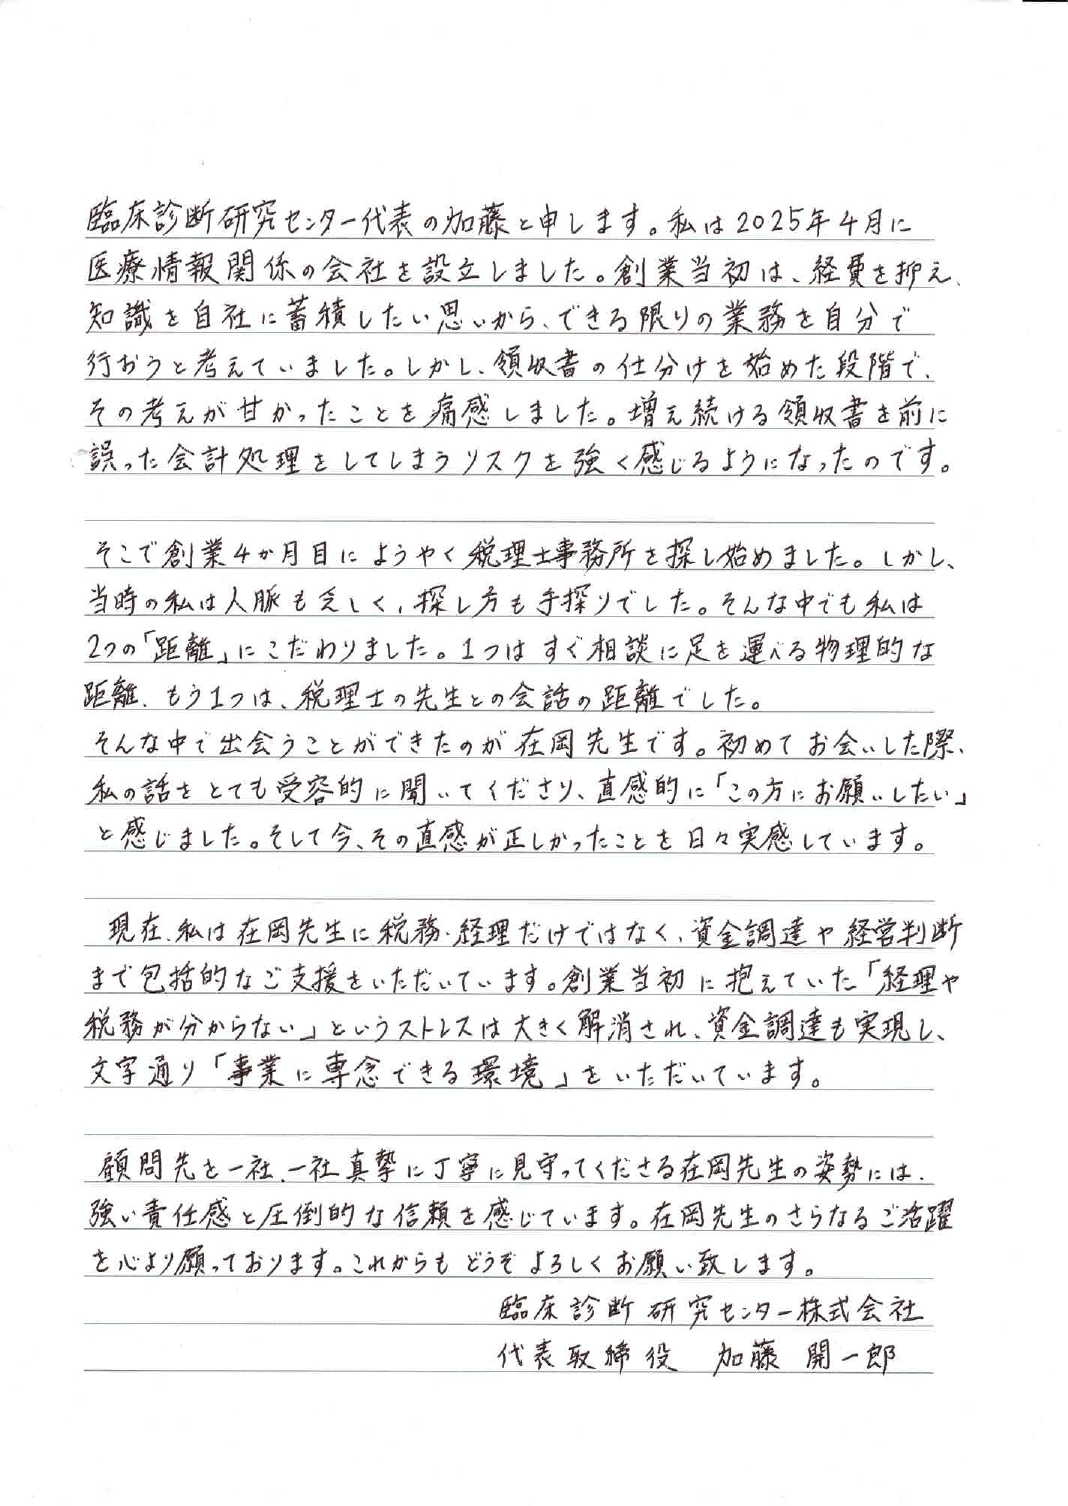 臨床診断研究センター代表の加藤と申します。私は2025年4月に
医療情報関係の会社を設立しました。創業当初は、経費を抑え、
知識を自社に蓄積したい思いから、できる限りの業務を自分で
行おうと考えていました。しかし、領収書の仕分けを始めた段階で、
その考えが甘かったことを痛感しました。増え続ける領収書を前に
誤った会計処理をしてしまうリスクを強く感じるようになったのです。
そこで創業4か月目にようやく税理士事務所を探し始めました。しかし、
当時の私は人脈も乏しく、探し方も手探りでした。そんな中でも私は
2つの「距離」にこだわりました。1つはすぐ相談に足を運べる物理的な
距離、もう1つは、税理士の先生との会話の距離でした。
そんな中で出会うことができたのが在岡先生です。初めてお会いした際、
私の話をとても受容的に聞いてくださり、直感的に「この方にお願いしたい」
と感じました。そして今、その直感が正しかったことを日々実感しています。
現在、私は在岡先生に税務・経理だけではなく、資金調達や経営判断
まで包括的なご支援をいただいています。創業当初に抱えていた「経理や
税務が分からない」というストレスは大きく解消され、資金調達も実現し、
文字通り「事業に専念できる環境」をいただいています。
顧問先を一社、一社真摯に丁寧に見守ってくださる在岡先生の姿勢には、
強い責任感と圧倒的な信頼を感じています。在岡先生のさらなるご活躍
を心より願っております。これからもどうぞよろしくお願い致します。
臨床診断研究センター株式会社
代表取締役 加藤 開一郎